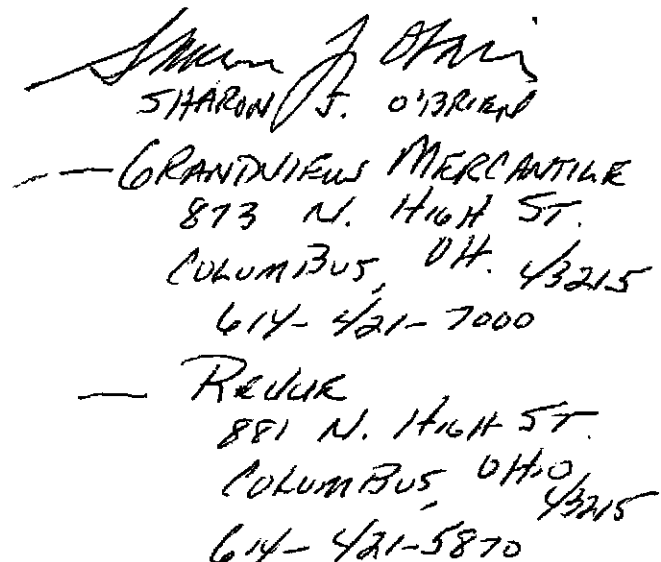 Sharon J. O'Brien
SHARON J. O'BRIEN
— GRANDVIEW MERCANTILE
873 N. HIGH ST.
COLUMBUS, OH. 43215
614-421-7000
— REVUE
881 N. HIGH ST.
COLUMBUS, OHIO 43215
614-421-5870